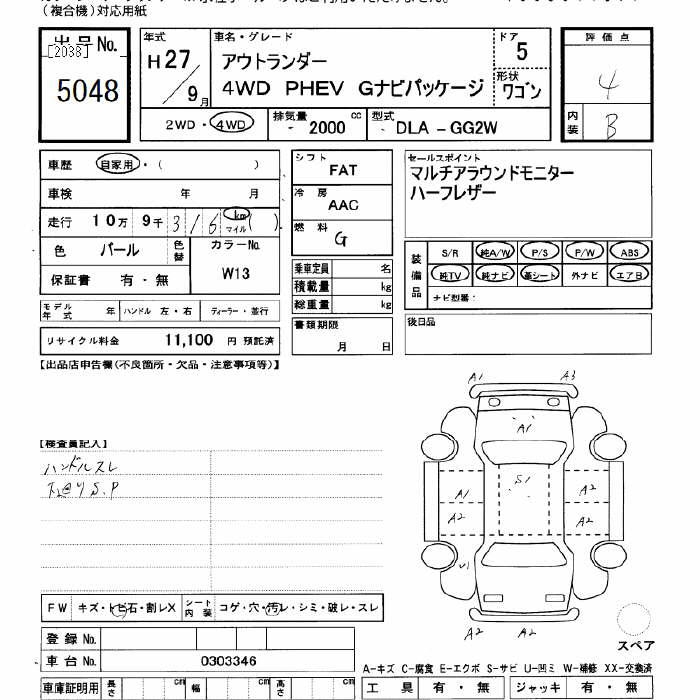 (複合機)対応用紙
出品No. [2038]
5048
年式 H27/9月
車名・グレード
アウトランダー
4WD PHEV Gナビパッケージ
ドア 5
形状 ワゴン
評価点 4
内装 B
2WD・4WD
排気量 2000 cc
型式 DLA-GG2W
車歴 自家用・( )
車検 年 月
走行 10万 9千 316 km マイル ( )
色 パール 色替 カラーNo. W13
保証書 有・無
モデル年式 年 ハンドル 左・右 ディーラー・並行
リサイクル料金 11,100 円 預託済
シフト FAT
冷房 AAC
燃料 G
乗車定員 名
積載量 kg
総重量 kg
書類期限
月 日
セールスポイント
マルチアラウンドモニター
ハーフレザー
装備品
S/R 純A/W P/S P/W ABS
純TV 純ナビ 革シート 外ナビ エアB
ナビ型番:
後日品
【出品店申告欄(不良箇所・欠品・注意事項等)】
【検査員記入】
ハンドルスレ
S.P
A1 A3
A1
S1
A1 A2
A2 A2
A2 A2
FW キズ・トビ石・割レX シート内装 コゲ・穴・汚レ・シミ・破レ・スレ
登録No.
車台No. 0303346
スペア
A-キズ C-腐食 E-エクボ S-サビ U-凹ミ W-補修 XX-交換済
車庫証明用 長さ cm 幅 cm 高さ cm
工具 有・無 ジャッキ 有・無